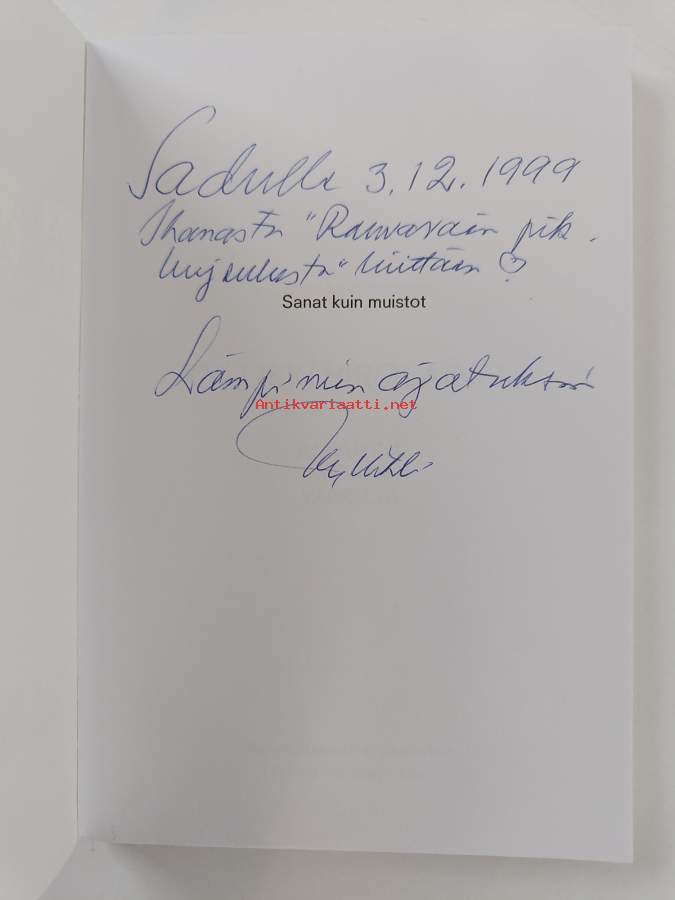 Sadulle 3.12.1999
Ihanasta "Rauvaraan pik-
kujoulusta" kiittäen ♡
Sanat kuin muistot
Lämpimin ajatuksin
Antikvariaatti.net